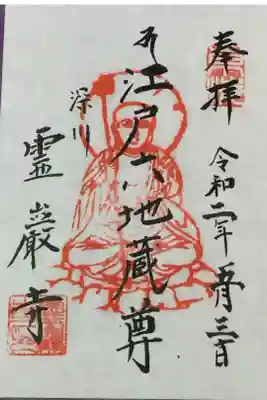 奉拝
令和二年五月三日
江戸六地蔵尊
深川
霊巌寺